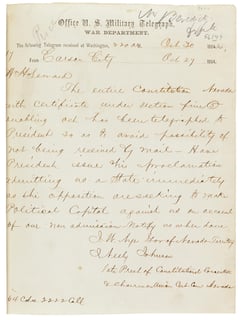 Office U. S. Military Telegraph,
WAR DEPARTMENT.
The following Telegram received at Washington, M. Oct 30 186
From Carson City
Oct 29 1864.
Wm H Seward
The entire Constitution Nevada
with certificate under section five
enabling act has been telegraphed to
President so as to avoid possibility of
not being received by mail - Have
President issue his proclamation
admitting us as a State immediately
as the opposition are seeking to make
Political Capital against us on account
of our non admission Notify us when done
J. W. Nye Gov of Nevada Territory
J Neely Johnson
late Prest of Constitutional Convention
& Chairman Union Cen Com Nevada